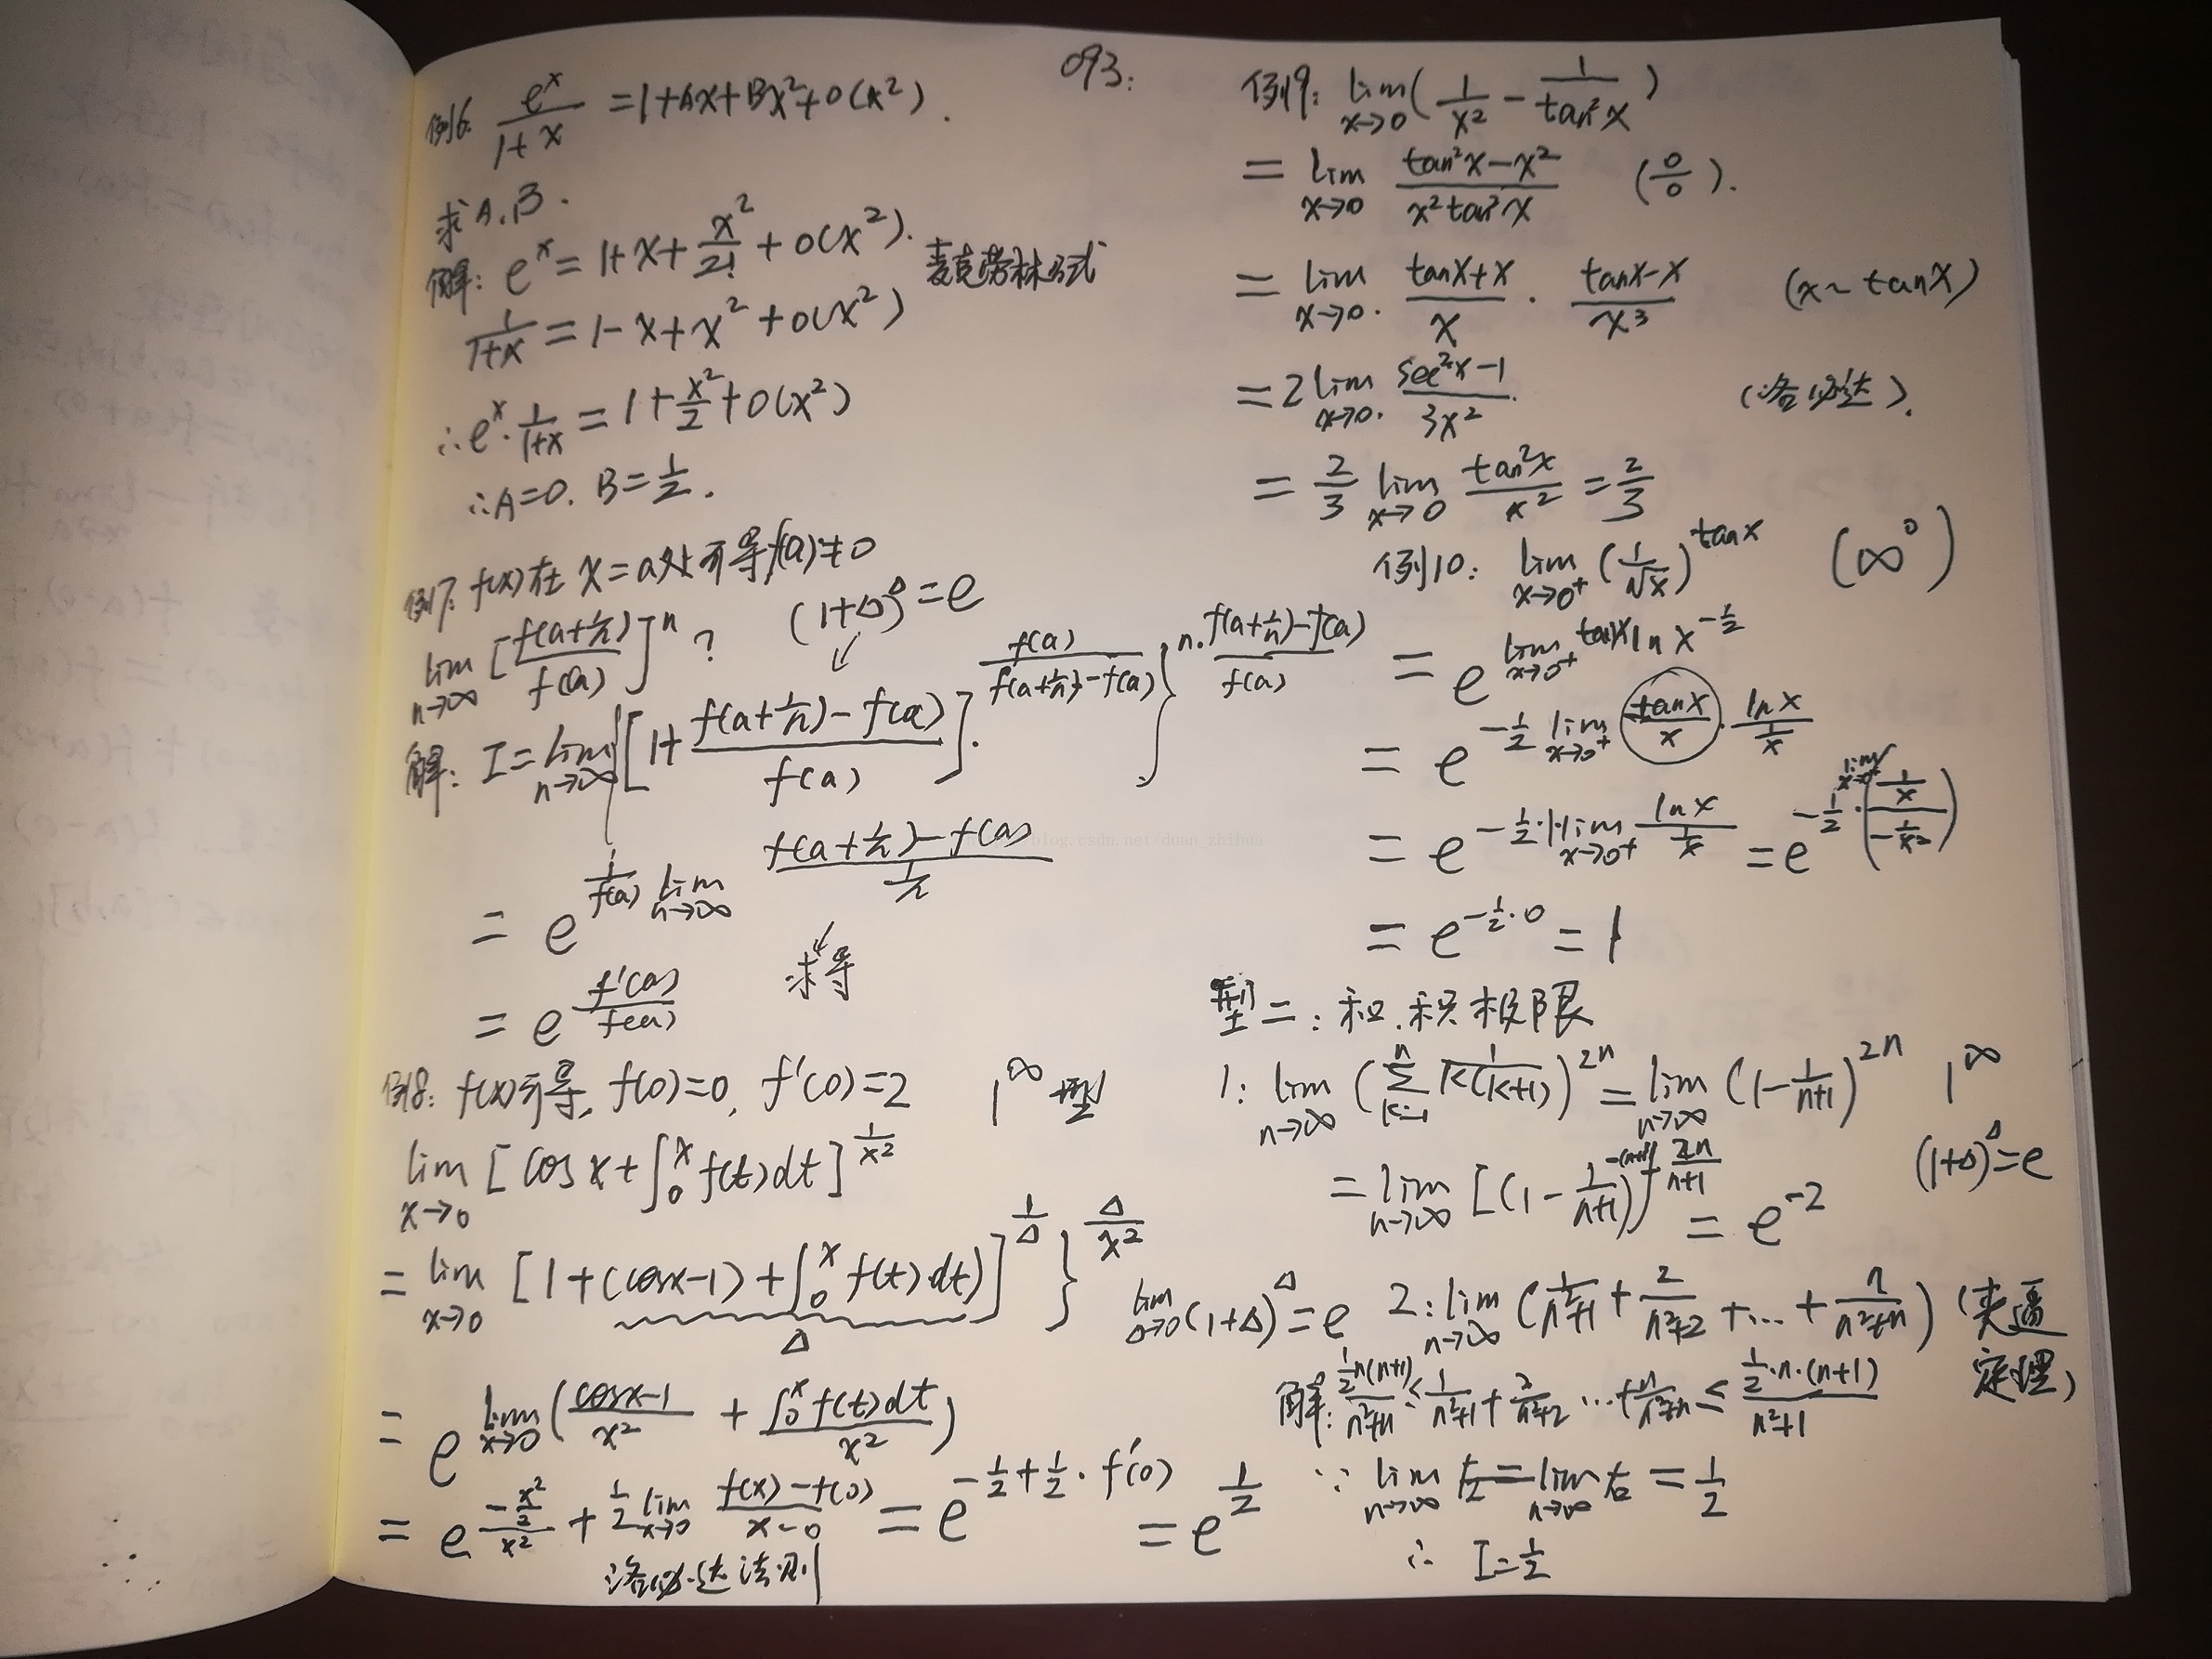 093:
例6: e^x/(1+x) = 1+Ax+Bx²+o(x²).
求A,B.
解: e^x = 1+x+x²/2!+o(x²). 麦克劳林公式
1/(1+x) = 1-x+x²+o(x²)
∴e^x·1/(1+x) = 1+x²/2+o(x²)
∴A=0. B=1/2.
例7: f(x)在x=a处可导f(a)≠0
lim n→∞ [f(a+1/n)/f(a)]^n ? (1+Δ)^Δ=e
解: I=lim n→∞ {[1+(f(a+1/n)-f(a))/f(a)]·^(f(a)/(f(a+1/n)-f(a)))}^(n·(f(a+1/n)-f(a))/f(a))
= e^(1/f(a) lim n→∞ (f(a+1/n)-f(a))/(1/n))
求导
= e^(f'(a)/f(a))
例8: f(x)可导, f(0)=0, f'(0)=2 1^∞型
lim x→0 [cosx+∫₀^x f(t)dt]^(1/x²)
= lim x→0 [1+(cosx-1)+∫₀^x f(t)·dt)]^(1/Δ)}^(Δ/x²)
Δ
lim Δ→0 (1+Δ)^Δ=e
= e^(lim x→0 ((cosx-1)/x² + ∫₀^x f(t)dt/x²))
= e^((-x²/2)/x² + 1/2 lim x→0 (f(x)-f(0))/(x-0)) = e^(-1/2+1/2·f'(0)) = e^(1/2)
洛必达法则
例9: lim x→0 (1/x² - 1/tan²x)
= lim x→0 (tan²x-x²)/(x²tan²x) (0/0).
= lim x→0· (tanx+x)/x · (tanx-x)/x³ (x~tanx)
= 2 lim x→0· (sec²x-1)/3x² (洛必达).
= 2/3 lim x→0 tan²x/x² = 2/3
例10: lim x→0⁺ (1/√x)^tanx (∞⁰)
= e^(lim x→0⁺ tanx ln x^(-1/2))
= e^(-1/2 lim x→0⁺ tanx/x · lnx/(1/x))
= e^(-1/2·1·lim x→0⁺ lnx/(1/x)) = e^(-1/2· lim x→0⁺ ((1/x)/(-1/x²)))
= e^(-1/2·0) = 1
型二: 和.积极限
1: lim n→∞ (∑ k=1 n 1/(k(k+1)))^2n = lim n→∞ (1-1/(n+1))^2n 1^∞
= lim n→∞ [(1-1/(n+1))^-(n+1)]^(-2n/(n+1)) = e^-2 (1+Δ)^Δ=e
2: lim n→∞ (1/(n²+1) + 2/(n²+2) +...+ n/(n²+n)) (夹逼定理)
解: (1/2 n(n+1))/(n²+n) ≤ 1/(n²+1) + 2/(n²+2) ...+ n/(n²+n) ≤ (1/2·n·(n+1))/(n²+1)
∵ lim n→∞ 左 = lim n→∞ 右 = 1/2
∴ I=1/2
blog.csdn.net/duan_zhihua